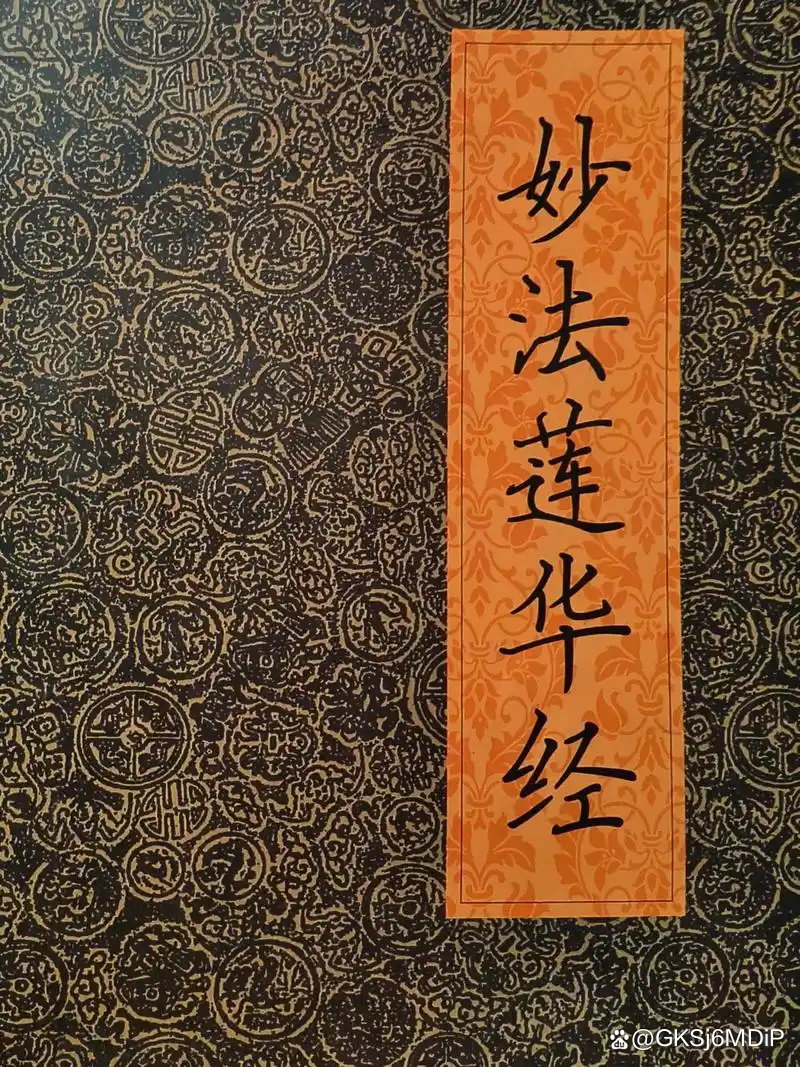 妙法莲华经
@GKSj6MDiP